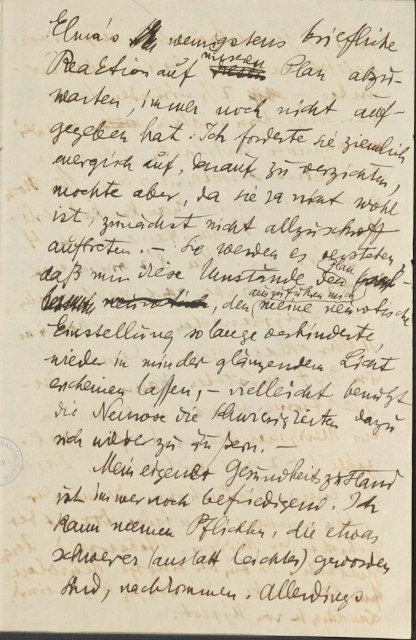 Elma's wenigstens briefliche
Reaktion auf unsern Plan abzu-
warten, immer noch nicht auf-
gegeben hat. Ich forderte sie ziemlich
energisch auf, darauf zu verzichten,
mochte aber, da sie ja nicht wohl
ist, zunächst nicht allzuschroff
auftreten. – Sie werden es verstehen
daß mir diese Umstände den Plan
den auszuführen mich meine neurotische
Einstellung so lange verhinderte,
wieder in minder glänzendem Licht
erscheinen lassen, – vielleicht benützt
die Neurose die Schwierigkeiten dazu
sich wieder zu äußern. –
Mein eigener Gesundheitszustand
ist immer noch befriedigend. Ich
kann meinen Pflichten, die etwas
schwerer (anstatt leichter) geworden
sind, nachkommen. Allerdings